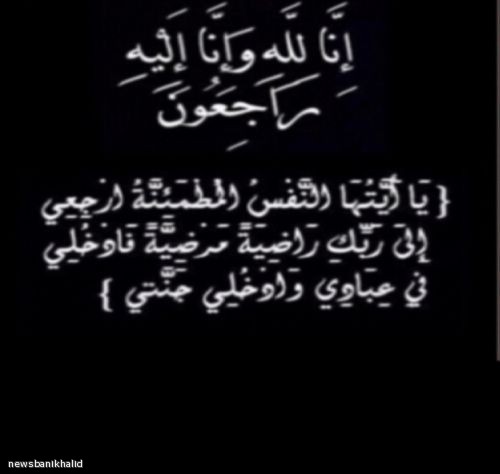 إِنَّا لِلَّهِ وَإِنَّا إِلَيْهِ
رَاجِعُونَ
{ يَا أَيَّتُهَا النَّفْسُ الْمُطْمَئِنَّةُ ارْجِعِي
إِلَىٰ رَبِّكِ رَاضِيَةً مَرْضِيَّةً فَادْخُلِي
فِي عِبَادِي وَادْخُلِي جَنَّتِي }
newsbanikhalid